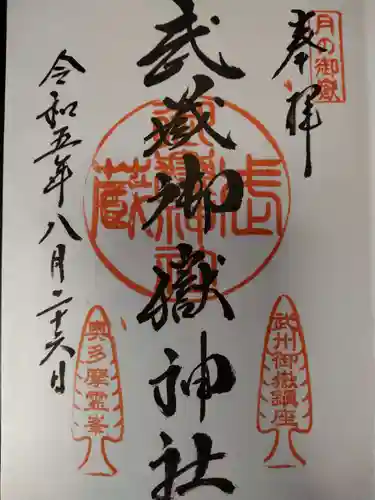 月の御嶽
奉拝
武州御嶽鎮座
武蔵御嶽神社
令和五年八月二十六日
奥多摩霊峯